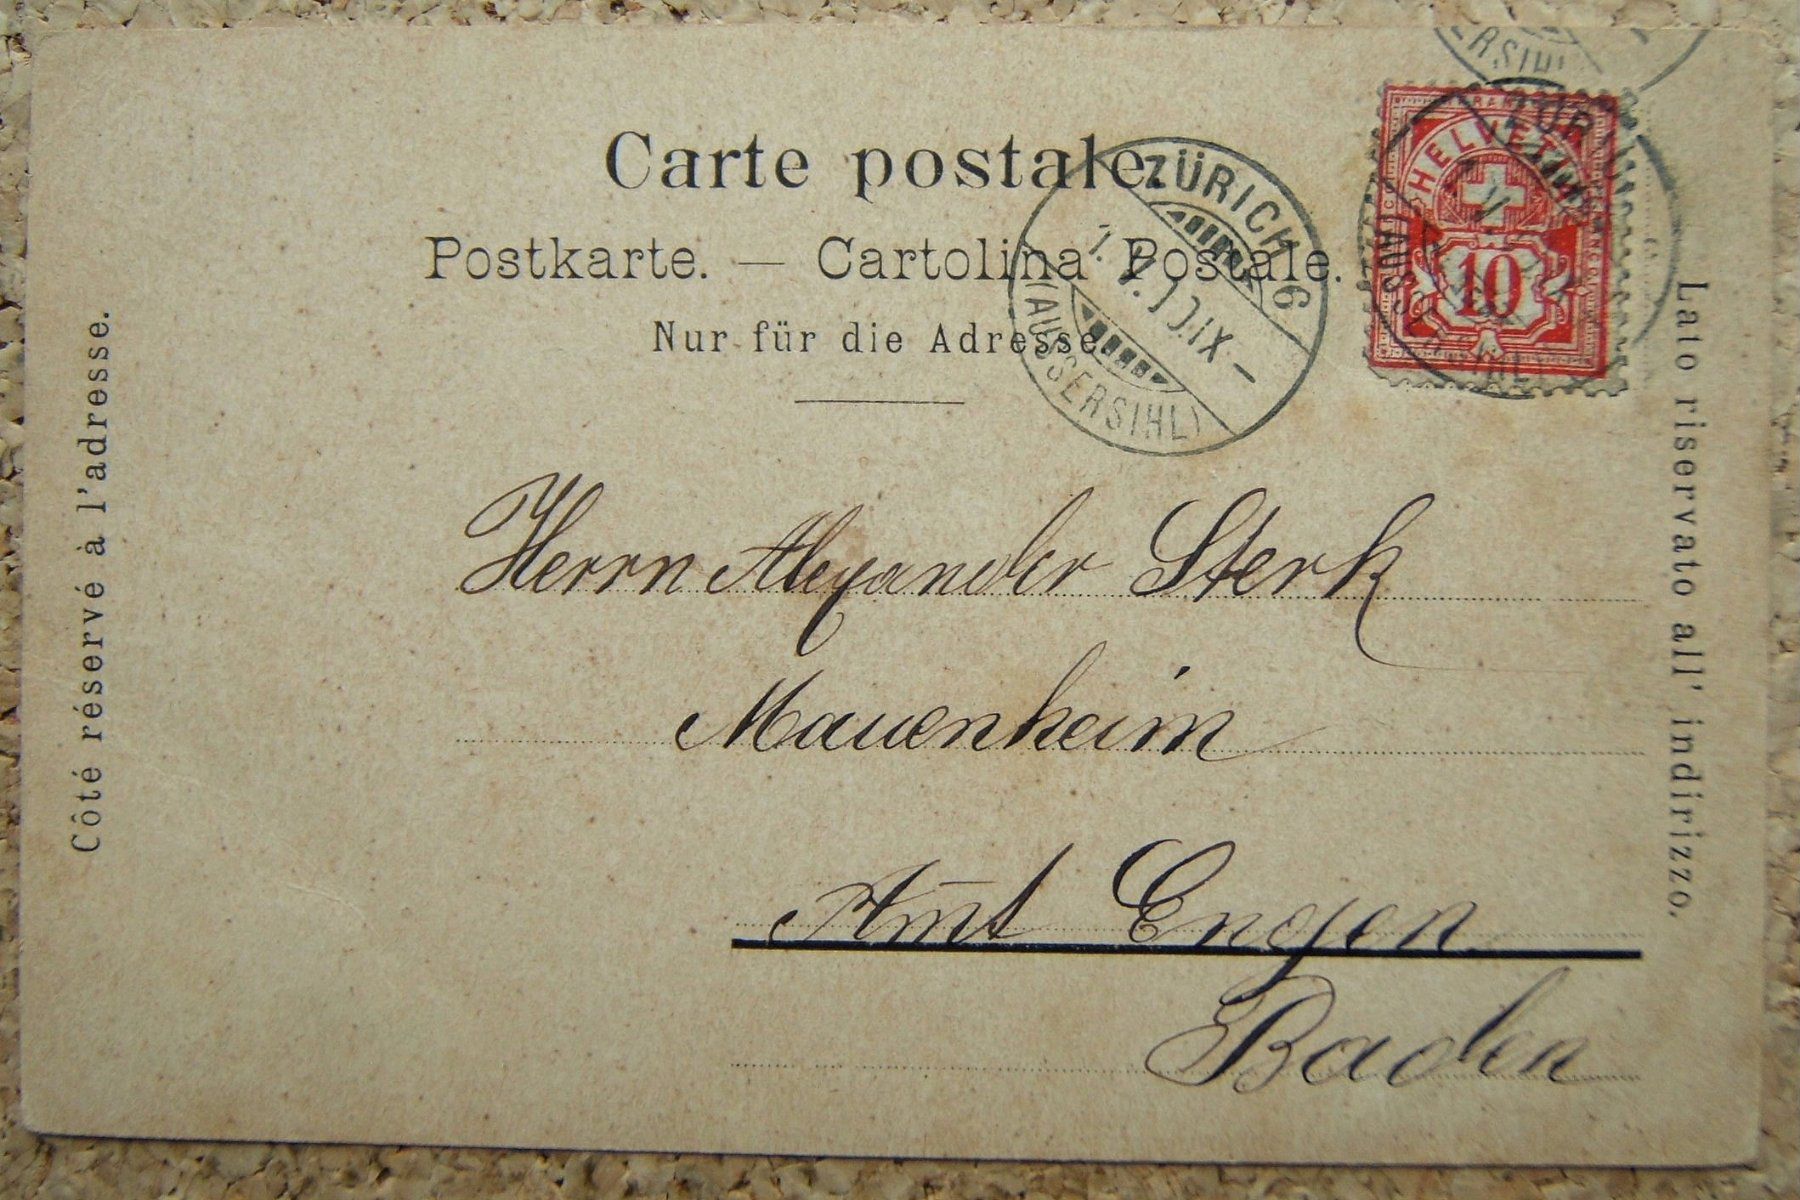 Carte postale.
Postkarte. — Cartolina Postale.
Nur für die Adresse
Côté réservé à l'adresse.
Lato riservato all' indirizzo.
ZÜRICH 6
IX –
(AUSSERSIHL)
ERSIHL
HELVETIA
10
Herrn Alexander Sterk
Mauenheim
Amt Engen
Baden